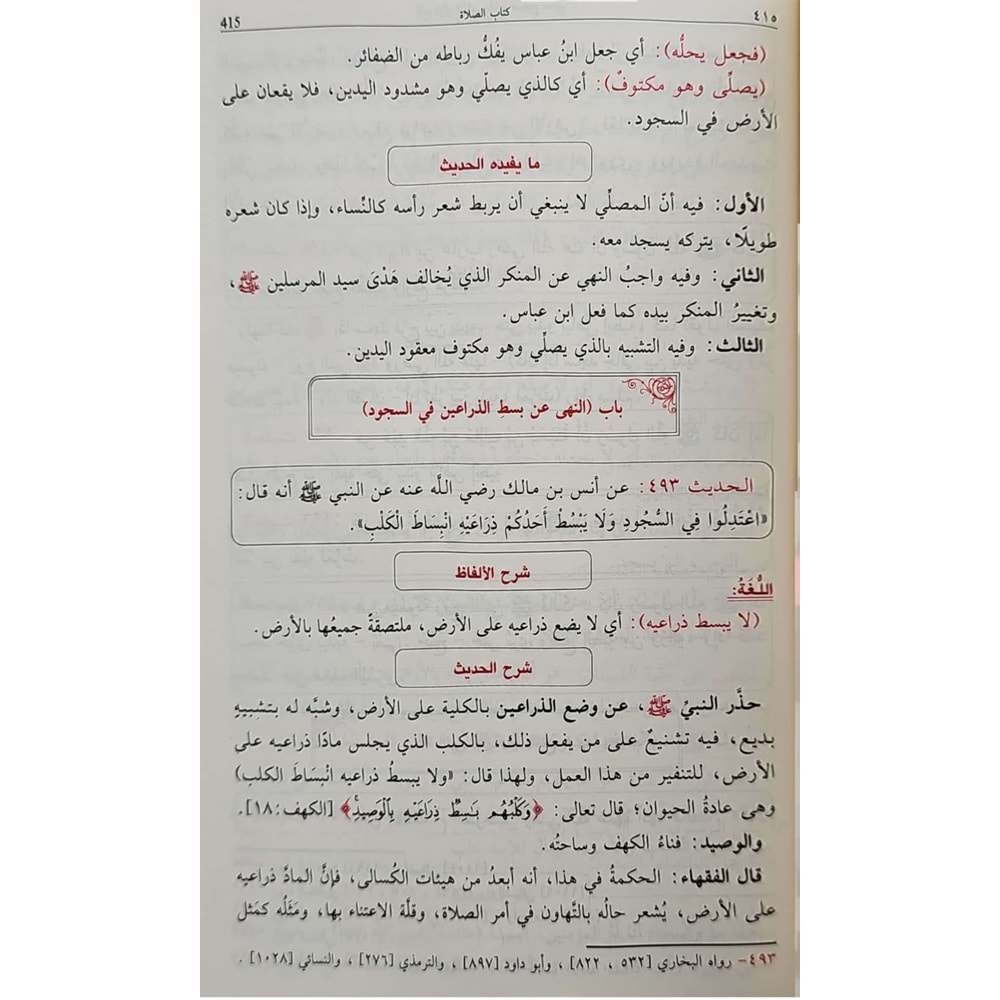 ٤١٥ كتاب الصلاة 415
(فجعل يحلُّه): أي جعل ابنُ عباس يفُكُّ رباطه من الضفائر.
(يصلِّى وهو مكتوفٌ): أي كالذي يصلّي وهو مشدود اليدين، فلا يقعان على
الأرض في السجود.
ما يفيده الحديث
الأول: فيه أنّ المصلّي لا ينبغي أن يربط شعر رأسه كالنِّساء، وإذا كان شعره
طويلًا، يتركه يسجد معه.
الثاني: وفيه واجبُ النهي عن المنكر الذي يُخالف هَدْىَ سيد المرسلين ﷺ،
وتغييرُ المنكر بيده كما فعل ابن عباس.
الثالث: وفيه التشبيه بالذي يصلِّي وهو مكتوف معقود اليدين.
باب (النهى عن بسطِ الذراعين في السجود)
الحديث ٤٩٣: عن أنس بن مالك رضي اللَّه عنه عن النبي ﷺ أنه قال:
«اعْتَدِلُوا فِي السُّجُودِ وَلَا يَبْسُطْ أَحَدُكُمْ ذِرَاعَيْهِ انْبِسَاطَ الْكَلْبِ».
شرح الألفاظ
اللُّغَةُ:
(لا يبسط ذراعيه): أي لا يضع ذراعيه على الأرض، ملتصقةً جميعُها بالأرض.
شرح الحديث
حذَّر النبيُّ ﷺ، عن وضع الذراعين بالكلية على الأرض، وشبَّه له بتشبيهٍ
بديع، فيه تشنيعٌ على من يفعل ذلك، بالكلب الذي يجلس مادًا ذراعيه على
الأرض، للتنفير من هذا العمل، ولهذا قال: «ولا يبسطُ ذراعيه انْبسَاطَ الكلب)
وهى عادةُ الحيوان؛ قال تعالى: ﴿وَكَلْبُهُم بَٰسِطٌ ذِرَاعَيْهِ بِٱلْوَصِيدِۚ﴾ [الكهف:١٨].
والوصيد: فناءُ الكهف وساحتُه.
قال الفقهاء: الحكمةُ في هذا، أنه أبعدُ من هيئات الكُسالى، فإنَّ المادَّ ذراعيه
على الأرض، يُشعر حالُه بالتَّهاون في أمر الصلاة، وقلَّة الاعتناء بها، ومَثَلُه كمَثل
٤٩٣- رواه البخاري [٥٣٢ ، ٨٢٢] ، وأبو داود [٨٩٧] ، والترمذي [٢٧٦] ، والنسائي [١٠٢٨] .